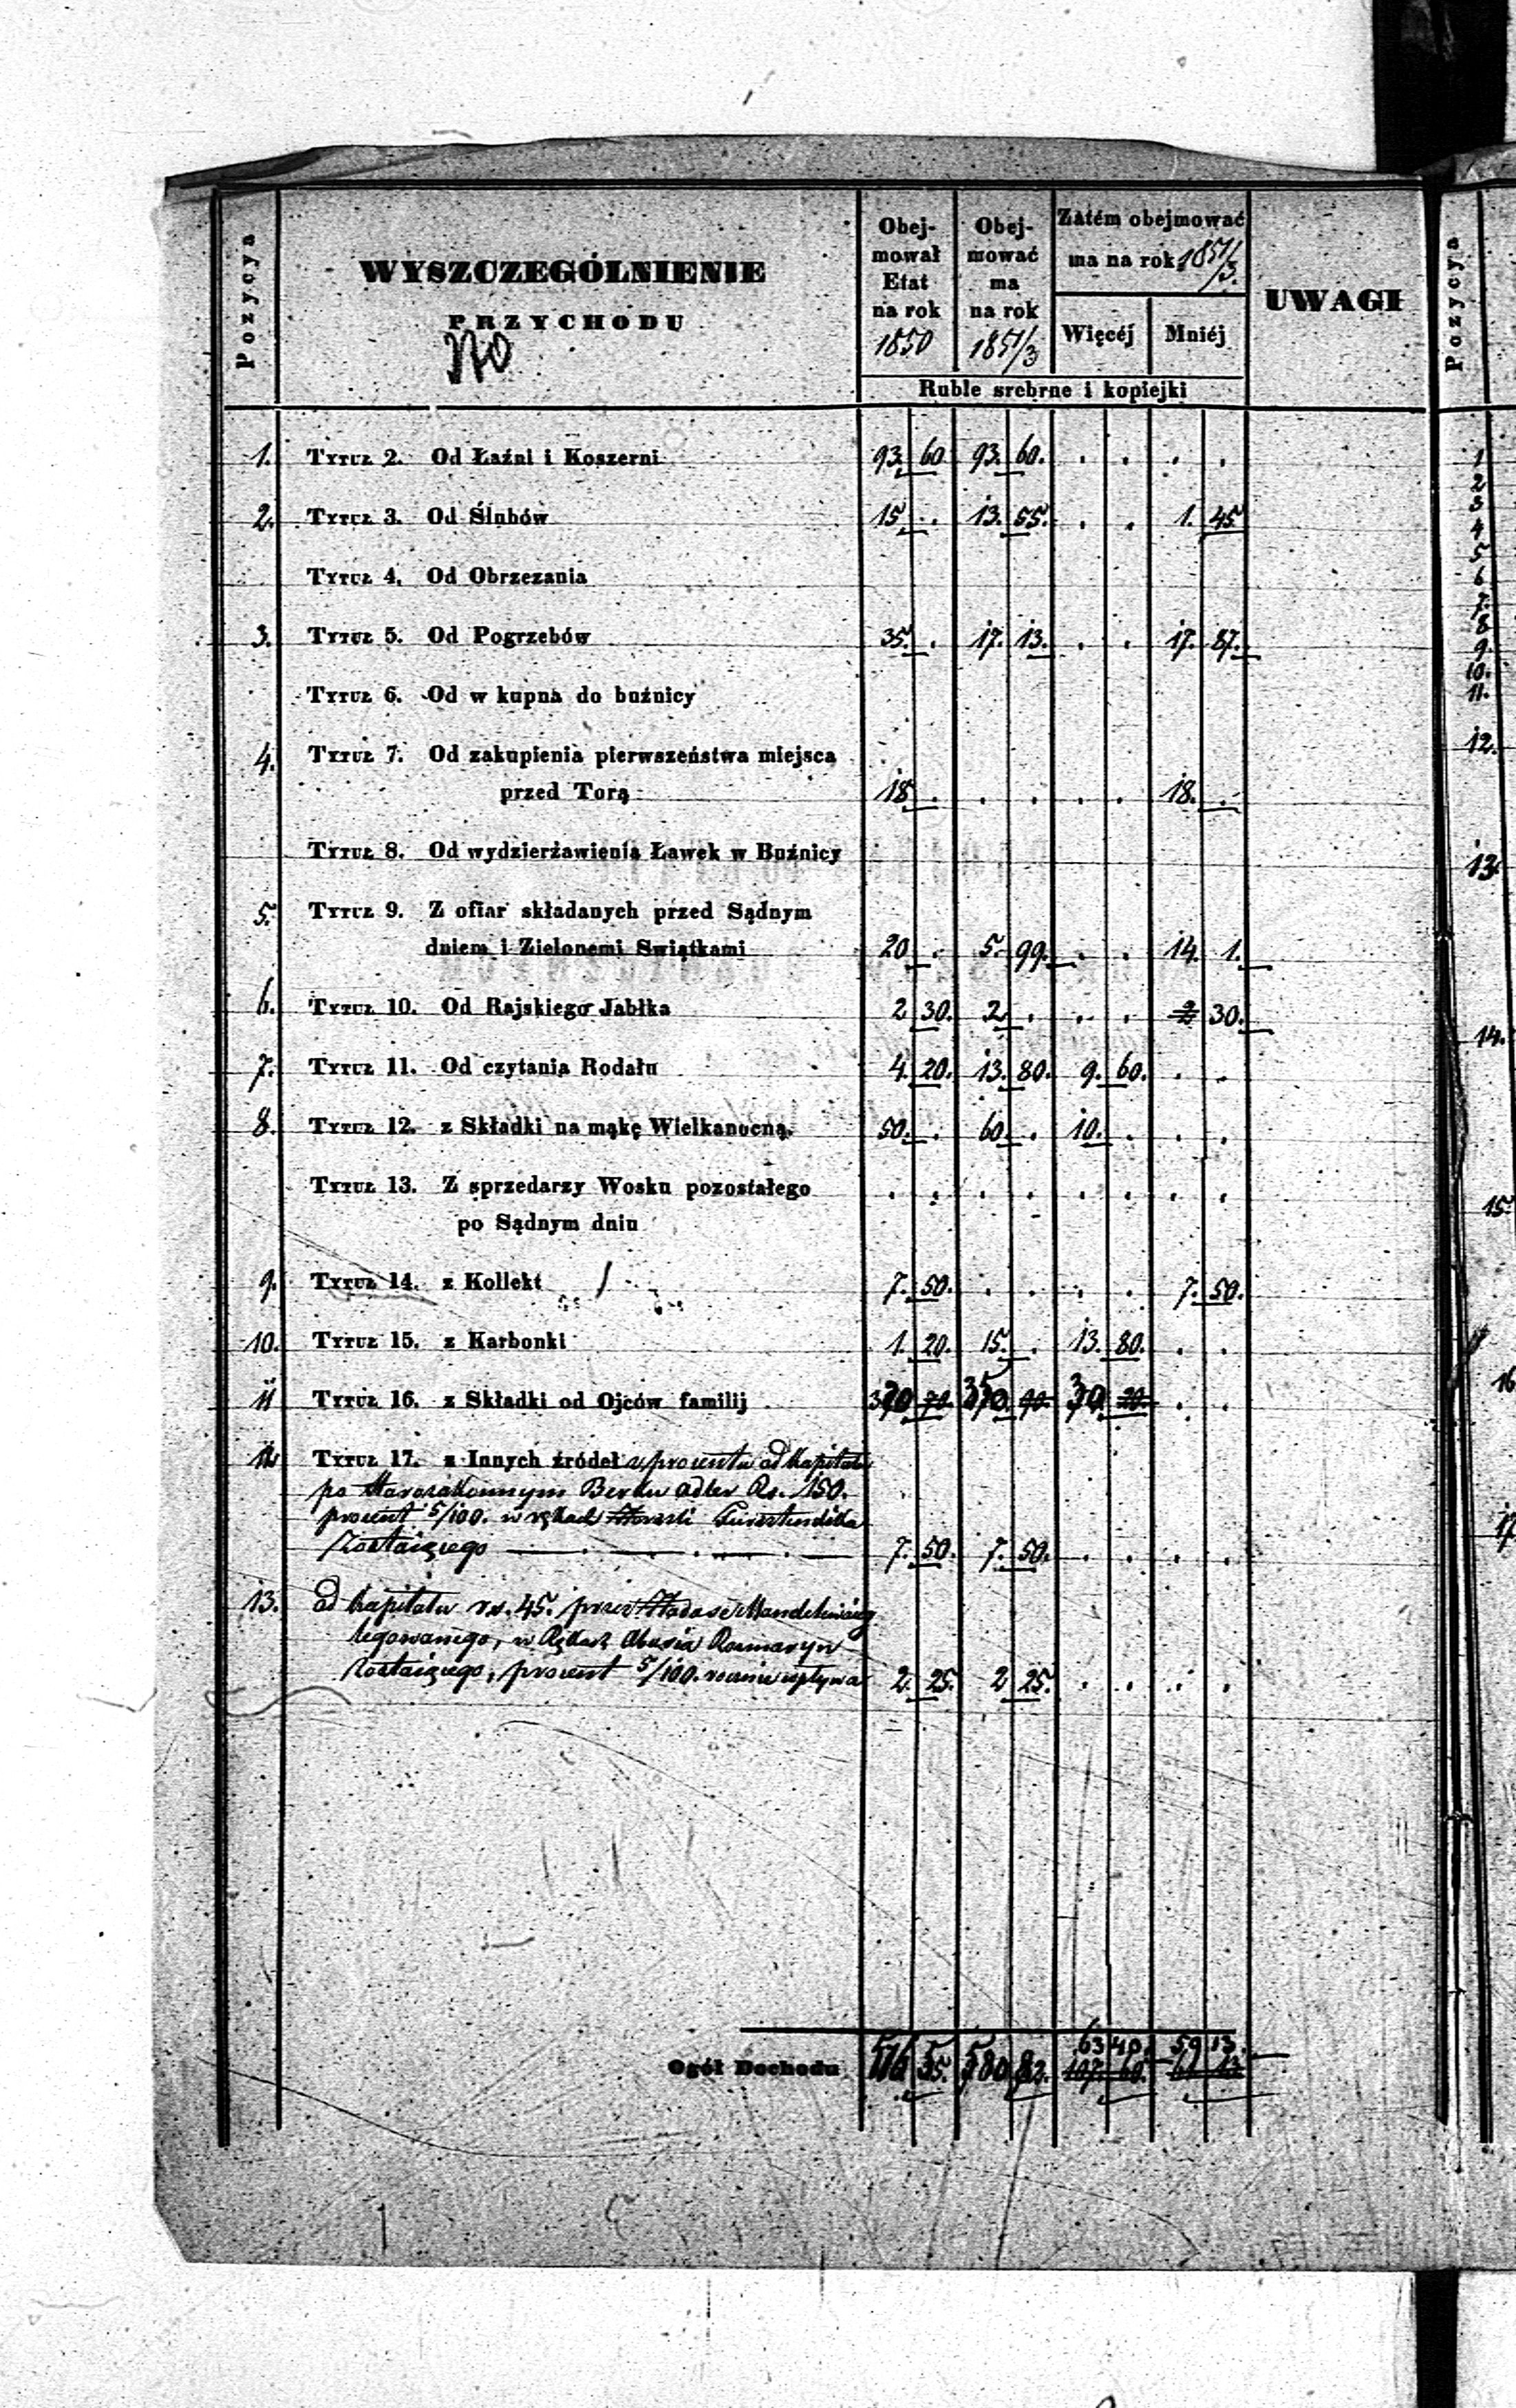 Pozycya
WYSZCZEGÓLNIENIE
PRZYCHODU
Obej-mował Etat na rok 1850
Obej-mować ma na rok 1851/3
Zatém obejmować ma na rok 1851/3.
Więcéj Mniéj
UWAGI
Ruble srebrne i kopiejki
1. Tytuł 2. Od Łaźni i Koszerni 93. 60 93. 60. . . . .
2. Tytuł 3. Od Ślubów 15. . 13. 55. . . 1. 45
Tytuł 4. Od Obrzezania
3. Tytuł 5. Od Pogrzebów 35. . 17. 13. . . 17. 87.
Tytuł 6. Od w kupna do bużnicy
4. Tytuł 7. Od zakupienia pierwszeństwa miejsca
przed Torą 18 . . . . . 18. .
Tytuł 8. Od wydzierżawienia Ławek w Bużnicy
5. Tytuł 9. Z ofiar składanych przed Sądnym
dniem i Zielonemi Swiątkami 20 . 5. 99. . . 14. 1.
6. Tytuł 10. Od Rajskiego Jabłka 2 30. 2 . . . 2 30.
7. Tytuł 11. Od czytania Rodału 4. 20. 13. 80. 9. 60. . .
8. Tytuł 12. z Składki na mąkę Wielkanocną. 50. . 60 . 10. . . .
Tytuł 13. Z sprzedarzy Wosku pozostałego . . . . . . . .
po Sądnym dniu
9. Tytuł 14. z Kollekt 7. 50. . . . . 7. 50.
10. Tytuł 15. z Karbonki 1. 20. 15. . 13. 80. . .
11 Tytuł 16. z Składki od Ojców familij . .
12. Tytuł 17. z Innych źródeł z procentu od Kapitału
po Starozakonnym Berku Adler Rs. 150.
procent 5/100. w rękach
Zostaiącego 7. 50. 7. 50. . . . .
13. od Kapitału rs. 45. przez
legowanego, w Rękach Rozmaryn
Zostaiącego, procent 5/100. rocznie wpływa 2. 25. 2 25. . . . .
63 40. 59 13.
Ogół Dochodu 516 55. 580 82. 107. 60. 61 13
Pozycya
1
2
3
4
5
6
7.
8
9.
10.
11.
12.
13.
14.
15
16
17